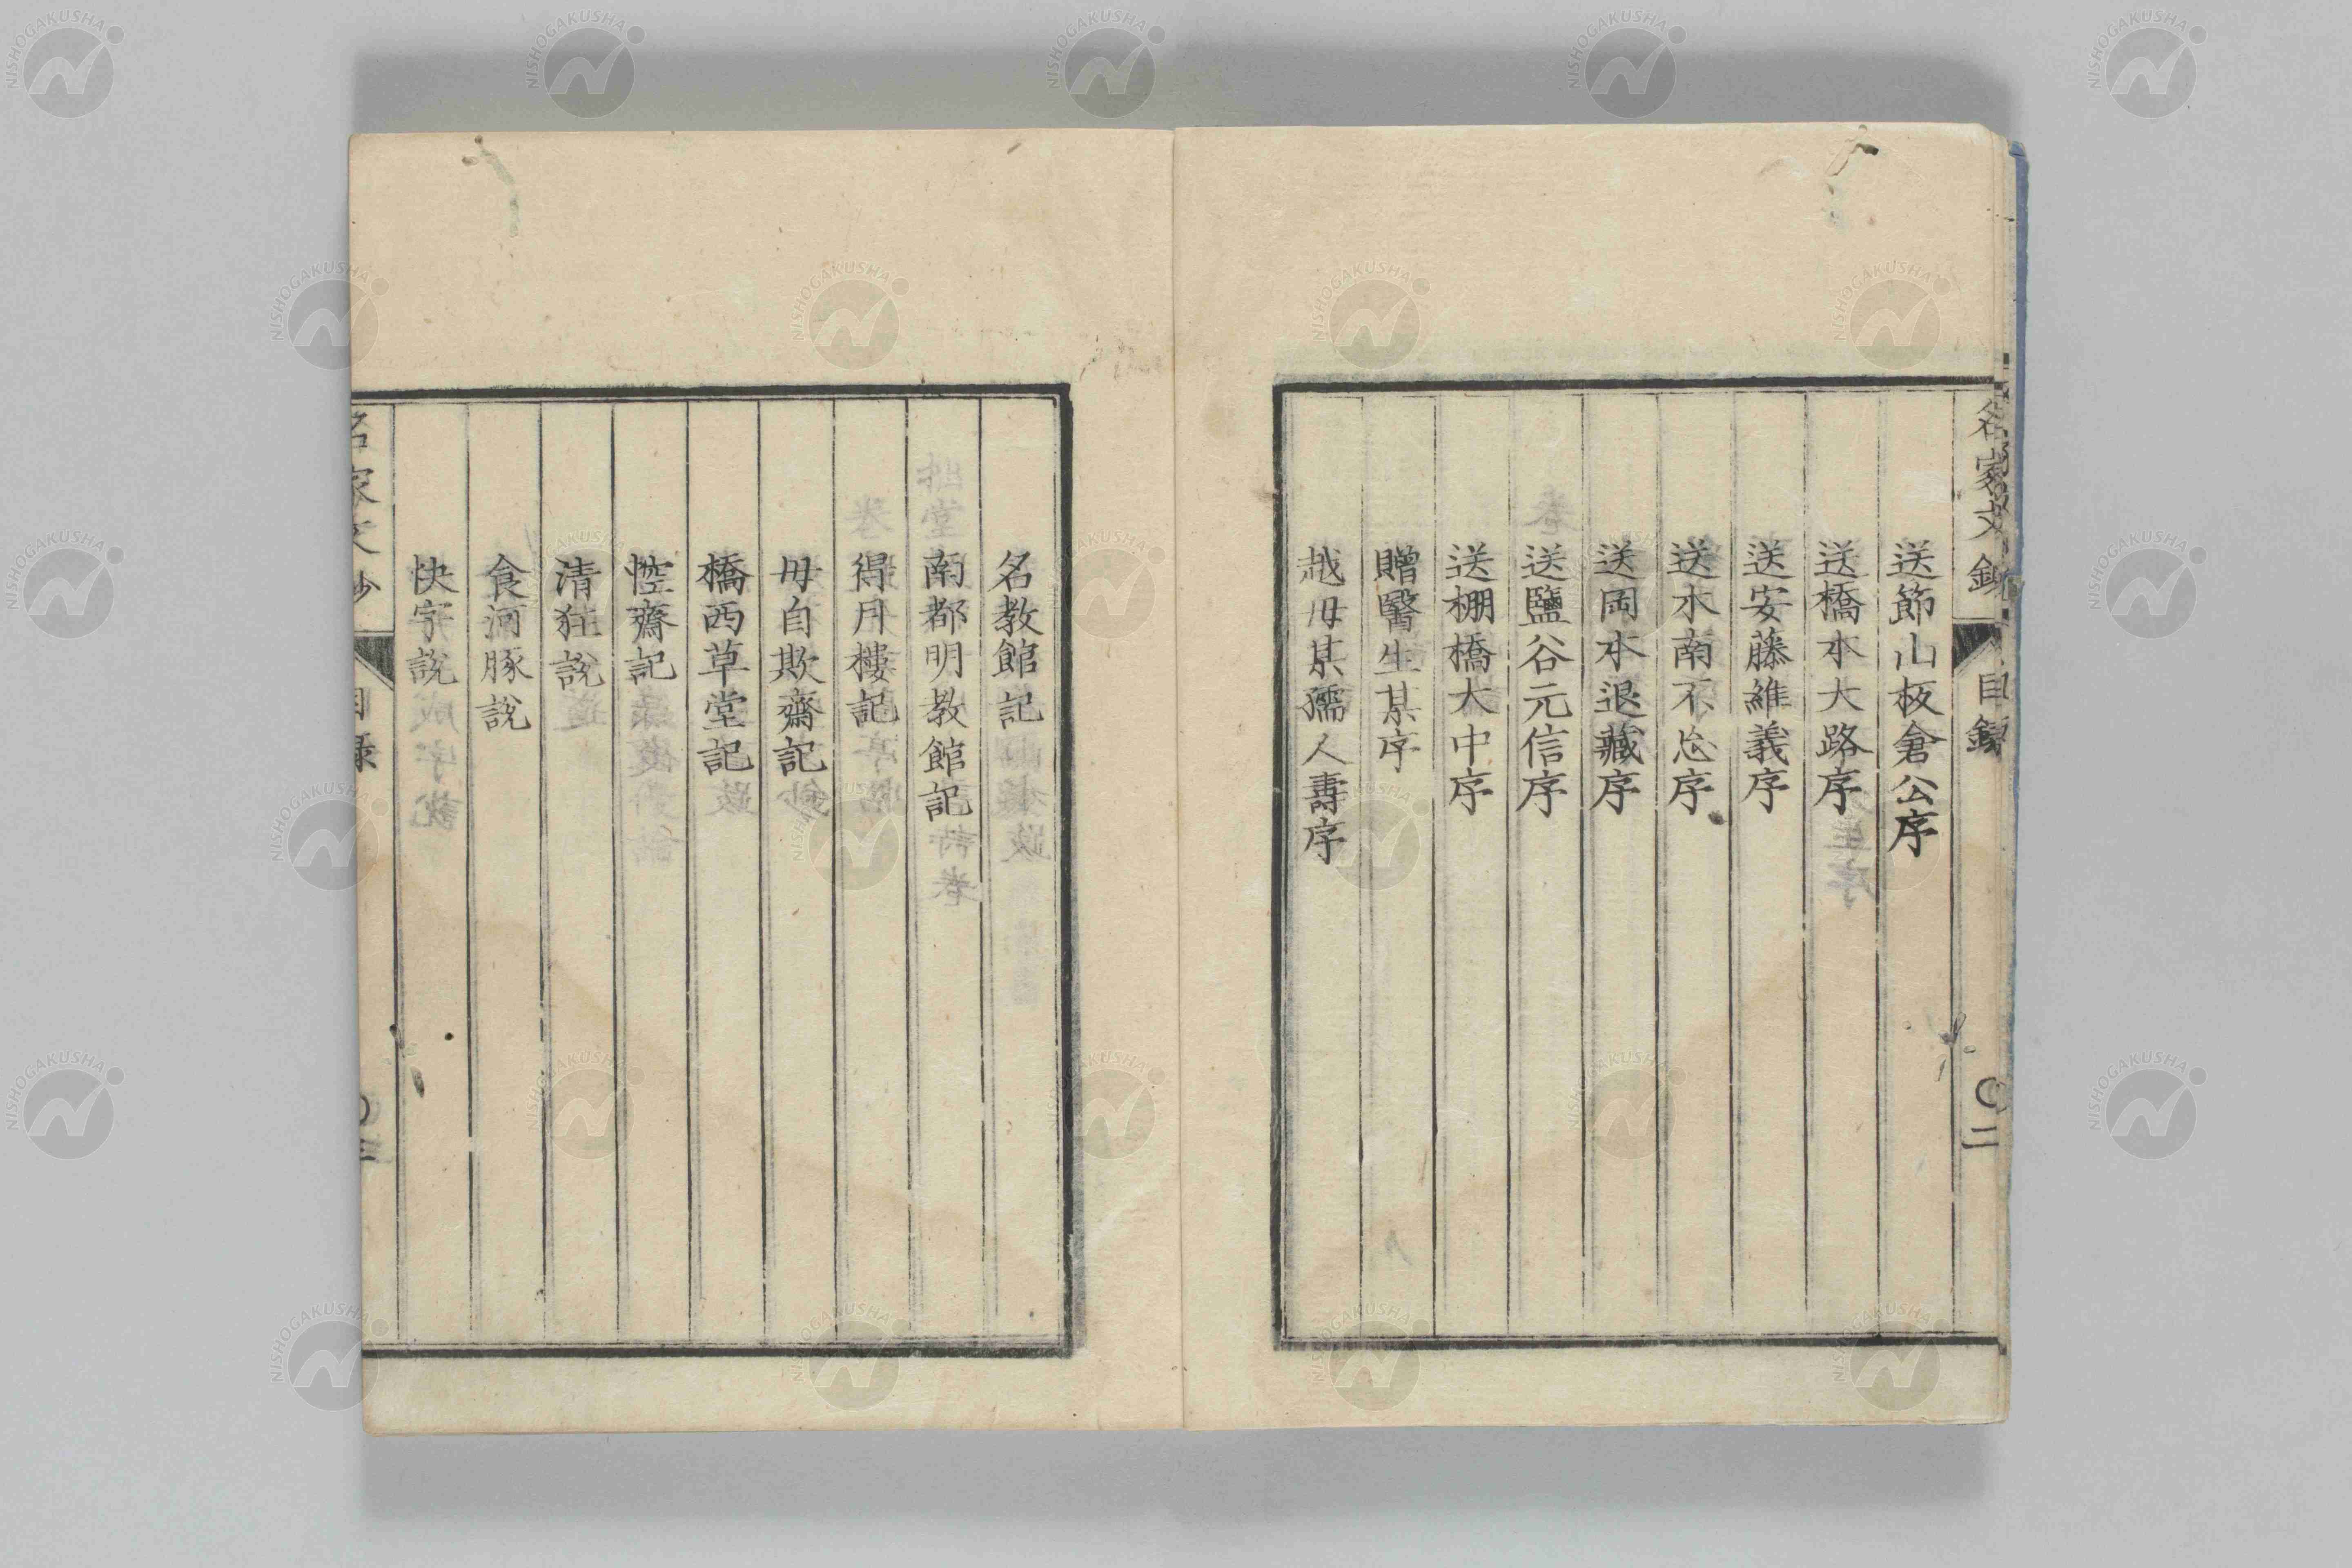 名家文鈔 目録 〇二
送節山板倉公序
送橋本大路序
送安藤維義序
送水南不忘序
送岡本退藏序
送鹽谷元信序
送棚橋大中序
贈醫生某序
越毋某孺人壽序
名教館記
南都明教館記
得月樓記
毋自欺齋記
橋西草堂記
悾齋記
清狂說
食河豚說
快字說
NISHOGAKUSHA